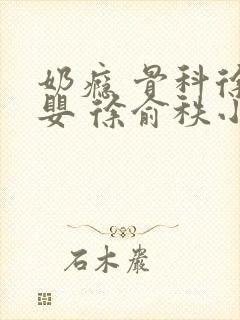 奶瘾 骨科徐
婴 徐俞秩小
石木岩